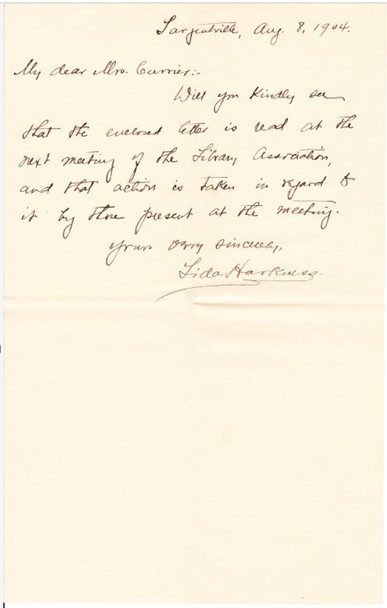 Sargentville, Aug. 8, 1904.
My dear Mrs. Currier:-
Will you kindly see
that the enclosed letter is read at the
next meeting of the Library Association,
and that action is taken in regard to
it by those present at the meeting.
Yours very sincerely,
Lida Harkness.